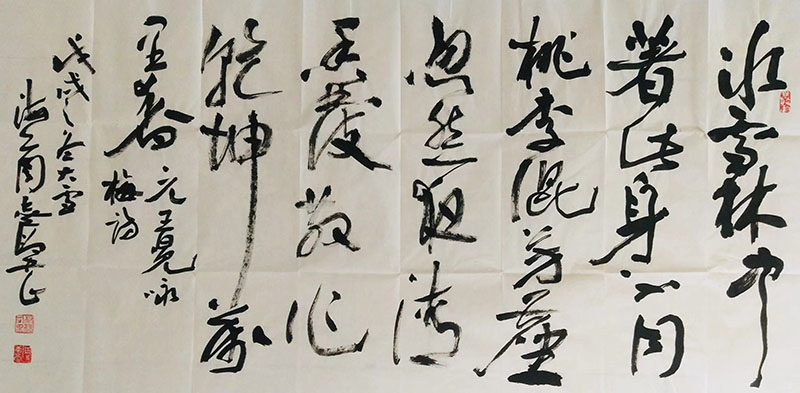 冰雪林中
著此身不同
桃李混芳塵
忽然一夜清
香發散作
乾坤萬
里春
元王冕咏
梅詩
戊戌之冬大雪